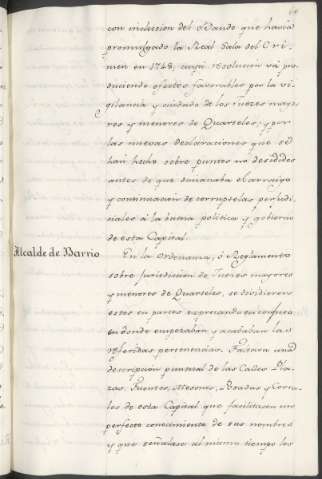 con inclucion del Vando que havia
promulgado la Real Sala del Cri-
men en 1748, cuya resolucion vá pro-
duciendo efectos favorables por la vi-
gilancia y cuidado de los Jueces mayo-
res y menores de Quarteles; y por
las nuevas declaraciones que se
han hecho sobre puntos no decididos
antes de que dimanaba el arraigo
y continuacion de corruptelas perjudi-
ciales á la buena politica y gobierno
de esta Capital.
Alcalde de Barrio
En la Ordenanza, ó Reglamento
sobre jurisdicion de Jueces mayores
y menores de Quarteles, se dividieron
estos en partes expresando
en donde empezaban y acababan las
referidas pertenencias. Factaron una
descripcion puntual de las Calles Pla-
zas, Fuentes, Mesones, Posadas y Corra-
les de esta Capital que facilitasen un
perfecto conocimiento de sus nombres
y que señalase al mismo tiempo los